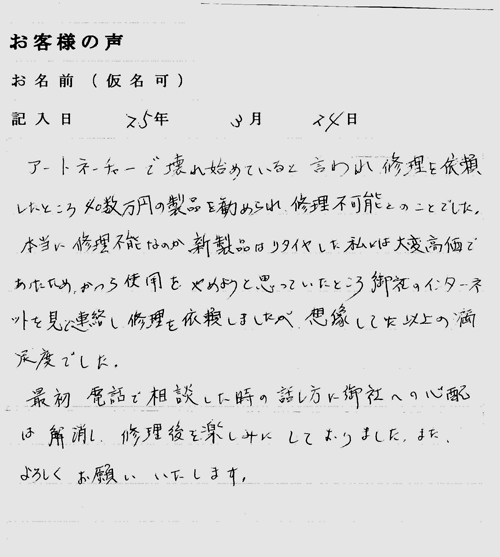 お客様の声
お名前（仮名可）
記入日 25年 3月 24日
アートネーチャーで壊れ始めていると言われ修理を依頼
したところ40数万円の製品を勧められ、修理不可能とのことでした。
本当に修理不能なのか新製品はリタイヤした私には大変高価で
あったため、かつら使用をやめようと思っていたところ御社のインターネ
ットを見て連絡し修理を依頼しましたが、想像してた以上の満
足度でした。
最初電話で相談した時の話し方に御社への心配
は解消し、修理後を楽しみにしておりました。また、
よろしくお願いいたします。